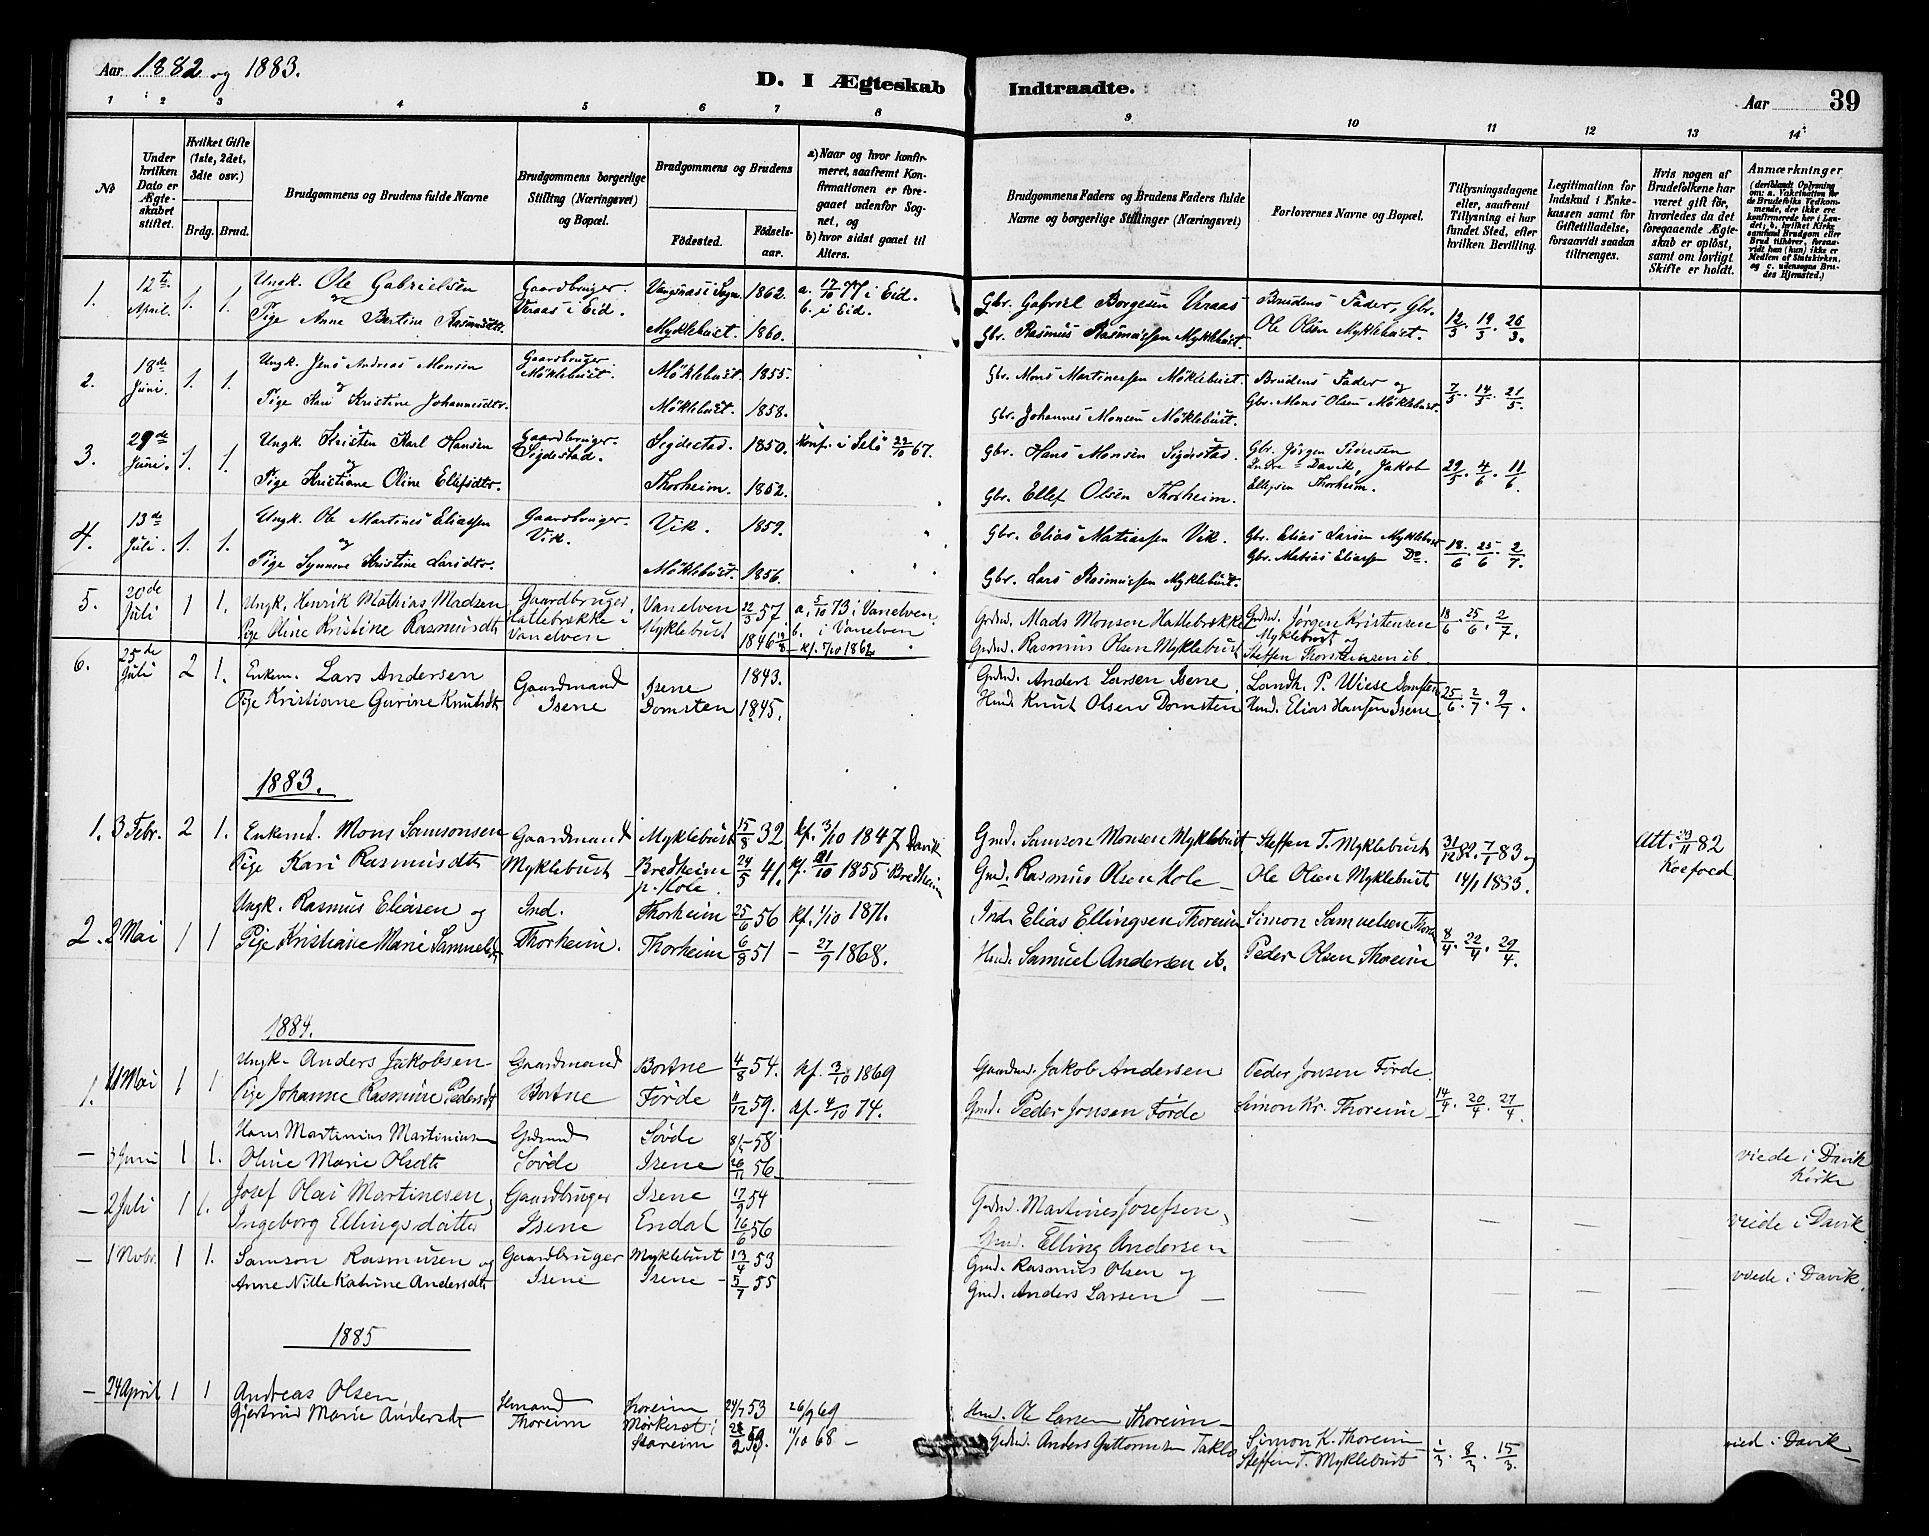 Aar 1882 og 1883.
D. I Ægteskab Indtraadte.
Aar 39
1 2 3 4 5 6 7 8 9 10 11 12 13 14
No
Under hvilken Dato er Ægteskabet stiftet.
Hvilket Gifte (1ste, 2det, 3die osv.)
Brdg. Brud.
Brudgommens og Brudens fulde Navne
Brudgommens borgerlige Stilling (Næringsvei) og Bopæl.
Brudgommens og Brudens
Födested.
Födselsaar.
a) Naar og hvor konfirmeret, saafremt Konfirmationen er foregaaet udenfor Sognet, og
b) hvor sidst gaaet til Alters.
Brudgommens Faders og Brudens Faders fulde Navne og borgerlige Stillinger (Næringsvei)
Forlovernes Navne og Bopæl.
Tillysningsdagene eller, saafremt Tillysning ei har fundet Sted, efter hvilken Bevilling.
Legitimation for Indskud i Enkekassen samt for Giftetilladelse, forsaavidt saadan tiltrænges.
Hvis nogen af Brudefolkene har været gift før, hvorledes da det foregaaende Ægteskab er opløst, samt om lovligt Skifte er holdt.
Anmærkninger
1. 12te April. 1. 1. Ungk. Ole Gabrielsen Gaardbruger. Vangsnæs i Sogn. 1862. a. 17/10 77 i Eid. Gbr. Gabriel Borgesen Veraas Brudens Fader, Gbr. 12/3. 19/3. 26/3.
og Veraas i Eid. b. i Eid.
Pige Anne Bertine Rasmusdtr. Myklebust. 1860. Gbr. Rasmus Rasmussen Myklebust. Ole Olsen Myklebust.
2. 18de Juni. 1. 1. Ungk. Jens Andreas Monsen Gaardbruger Möklebust. Möklebust. 1855. Gbr. Mons Martinessen Möklebust. Brudens Fader og 7/5. 14/5. 21/5.
og
Pige Kari Kristine Johannesdtr. Möklebust. 1858. Gbr. Johannes Monsen Möklebust. Gbr. Mons Olsen Möklebust.
3. 29de Juni. 1. 1. Ungk. Kristen Karl Hansen Gaardbruger. Sigdestad. Sigdestad. 1850. Konf. i Selö 22/10 67. Gbr. Hans Monsen Sigdestad. Gbr. Jörgen 29/5. 4/6. 11/6.
og Indre Davik, Jakob
Pige Kristiane Oline Ellefsdtr. Thorheim. 1852. Gbr. Ellef Olsen Thorheim. Ellefsen Thorheim.
4. 13de Juli. 1. 1. Ungk. Ole Martines Eliassen Gaardbruger. Vik. Vik. 1859. Gbr. Elias Matiassen Vik. Gbr. Elias Larsen Myklebust 18/6. 25/6. 2/7.
og Gbr. Matias Eliassen Do.
Pige Synneve Kristine Larsdtr. Möklebust. 1856. Gbr. Lars Rasmussen Myklebust.
5. 20de Juli 1 1. Ungk. Henrik Mathias Madsen Gaardbruger, Vanelven 22/3 57. a, 5/10 73 i Vanelven. Grdmd. Mads Monsen Hallebrække Grdmd. Jørgen Kristensen 18/6. 25/6. 2/7.
Hallebrække i b. i Vanelven Myklebust og
Pige Oline Kristine Rasmusdtr Vanelven Myklebust 1846 – kf. 1862 Grdmd. Rasmus Olsen Myklebust Steffen Thorstensen ib.
6. 25de Juli 2 1. Enkem. Lars Andersen Gaardmand Isene 1843. Grdmd. Anders Larsen Isene, Landh. P. Wiese Domsten 25/6. 2/7. 9/7.
Pige Kristiane Gurine Knutsdtr Isene Domsten 1845. Hmd. Knut Olsen Domsten Hmd. Elias Hansen Isene
1883.
1. 3 Febr. 2 1. Enkemd. Mons Samsonsen Gaardmand Myklebust 15/8 32 kf. 3/10 1847 Davik Gmd. Samson Monsen Myklebust Steffen T. Myklebust 31/12 82. 7/1 83 og Att. 29/11 82
Pige Kari Rasmusdtr Myklebust Bredheim 24/5 41. kf. 21/10 1855 Bredheim Gmd. Rasmus Olsen Hole – Ole Olsen Myklebust 14/1 1883. Koefoed
p. Hole.
2. 2 Mai 1 1 Ungk. Rasmus Eliasen og Ind. Thorheim 25/6 56 kf. 1/10 1871. Ind. Elias Ellingsen Thoreim Simon Samuelsen Thor 8/4. 22/4. 29/4.
Pige Kristiane Marie Samuelsdtr Thorheim. Thorheim 6/8 51 – 27/9 1868. Hmd. Samuel Andersen ib. Peder Olsen Thoreim
1884.
1. 11 Mai 1 1 Ungk. Anders Jakobsen Gaardmand Bortne 4/8 54. kf. 3/10 1869 Gaardmd. Jakob Andersen Peder Jonsen Förde.
Pige Johanne Rasmine Pedersdtr Bortne Förde 11/12 59. kf. 4/10 74. Gmd. Peder Jonsen Förde Simon Kr. Thoreim 14/4. 20/4. 27/4.
– 3 Juni 1 1. Hans Martinius Martiniusen Grdmand Sövde 58
Oline Marie Olsdtr Sövde Isene 56 viede i Davik Kirke
– 2 Juli 1 1. Josef Olai Martinesen, Gaardbruger Isene 17/9 54 Grdmd. Martines Josefsen,
Ingeborg Ellingsdatter Isene Endal 16/6 56 Gmd. Elling Andersen — — — viede i Davik.
– 1 Novbr. 1 1. Samson Rasmusen og Gaardbruger Myklebust 13/4 53 Gmd. Rasmus Olsen og
Anne Nille Katrine Andersdtr Isene Isene – 5/7 55 Gmd. Anders Larsen — — — — viede i Davik.
1885
– 24 April 1 1 Andreas Olsen, Hmand Thoreim 24/7 53 26/9 69 Hmd. Ole Larsen Thoreim –
Gjertrud Marie Andersdtr Thoreim i Stareim 11/10 68 – Grdmd. Anders Guttormsen Takle Simon K. Thoreim 1/3. 8/3. 15/3. vied i Davik –
Steffen T. Myklebust